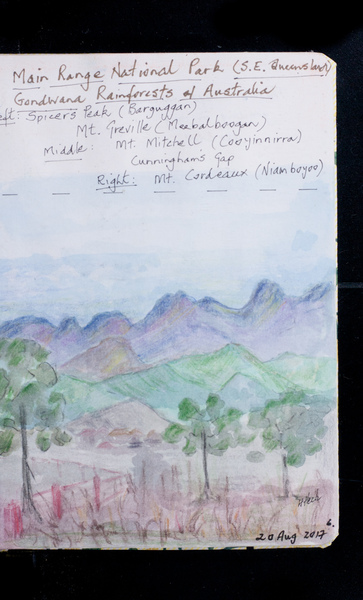 Main Range National Park (S.E. Queensland)
Gondwana Rainforests of Australia
Left: Spicers Peak (Barguggan)
Mt. Greville (Meebalboogan)
Middle: Mt. Mitchell (Cooyinnirra)
Cunninghams Gap
Right: Mt. Cordeaux (Niamboyoo)
6.
20 Aug 2017